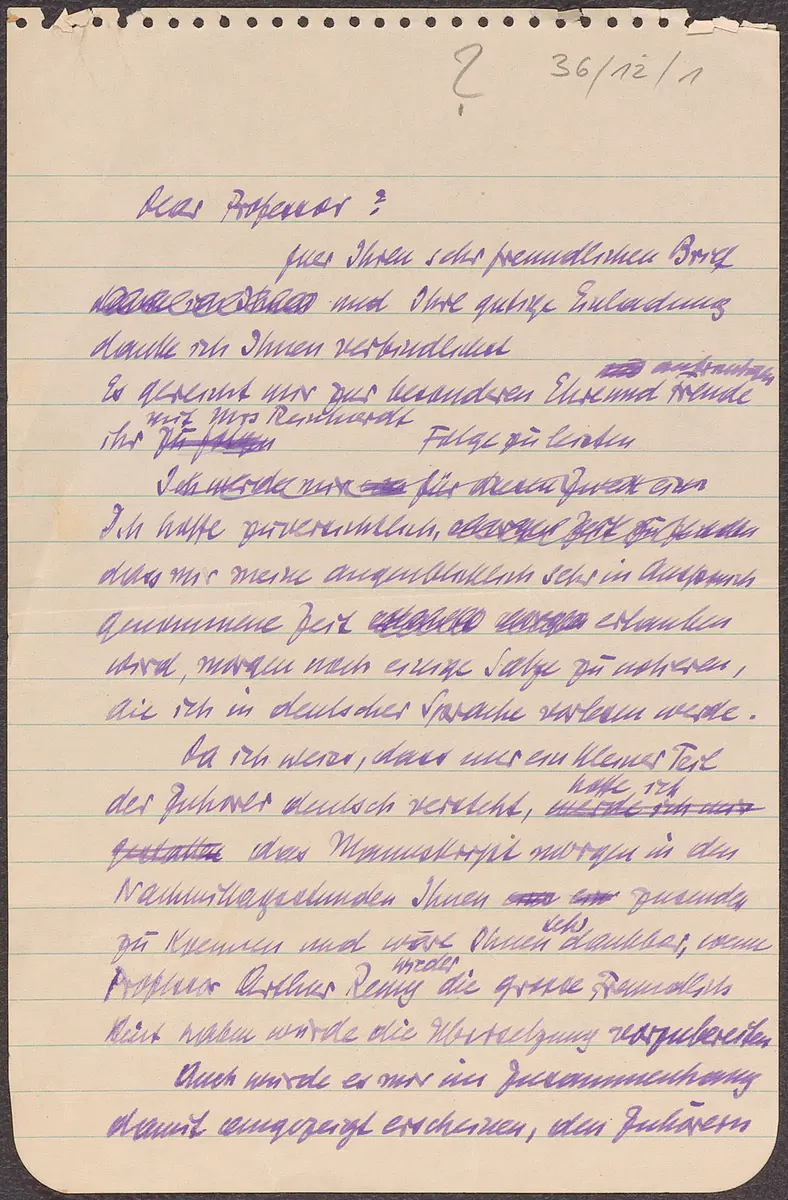 ? 36/12/1
Dear Professor ?
fuer Ihren sehr freundlichen Brief
und Ihre gütige Einladung
danke ich Ihnen verbindlichst
aufrichtigen
Es gereicht mir zur besonderen Ehre und Freude
mit Mrs Reinhardt
ihr Folge zu leisten
Ich werde mir für diesen Zweck eine
Ich hoffe zuversichtlich,
dass mir meine augenblicklich sehr in Anspruch
genommene Zeit erlauben
wird, morgen noch einige Sätze zu notieren,
die ich in deutscher Sprache vorlesen werde.
Da ich weiss, dass nur ein kleiner Teil
hoffe ich
der Zuhörer deutsch versteht, werde ich mir
gestatten das Manuskript morgen in den
Nachmittagsstunden Ihnen zusenden
sehr
zu koennen und wäre Ihnen dankbar, wenn
wieder
Professor Arthur Remy die grosse Freundlich
keit haben würde die Übersetzung vorzubereiten
Auch würde es mir im Zusammenhang
damit angezeigt erscheinen, den Zuhörern